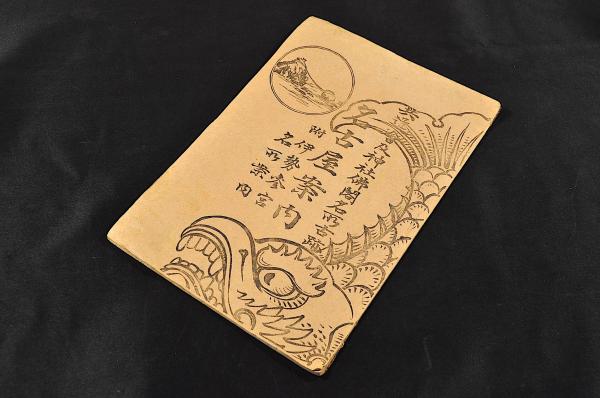 及神社佛閣名所古跡
名古屋案内
附伊勢参宮
名所案内